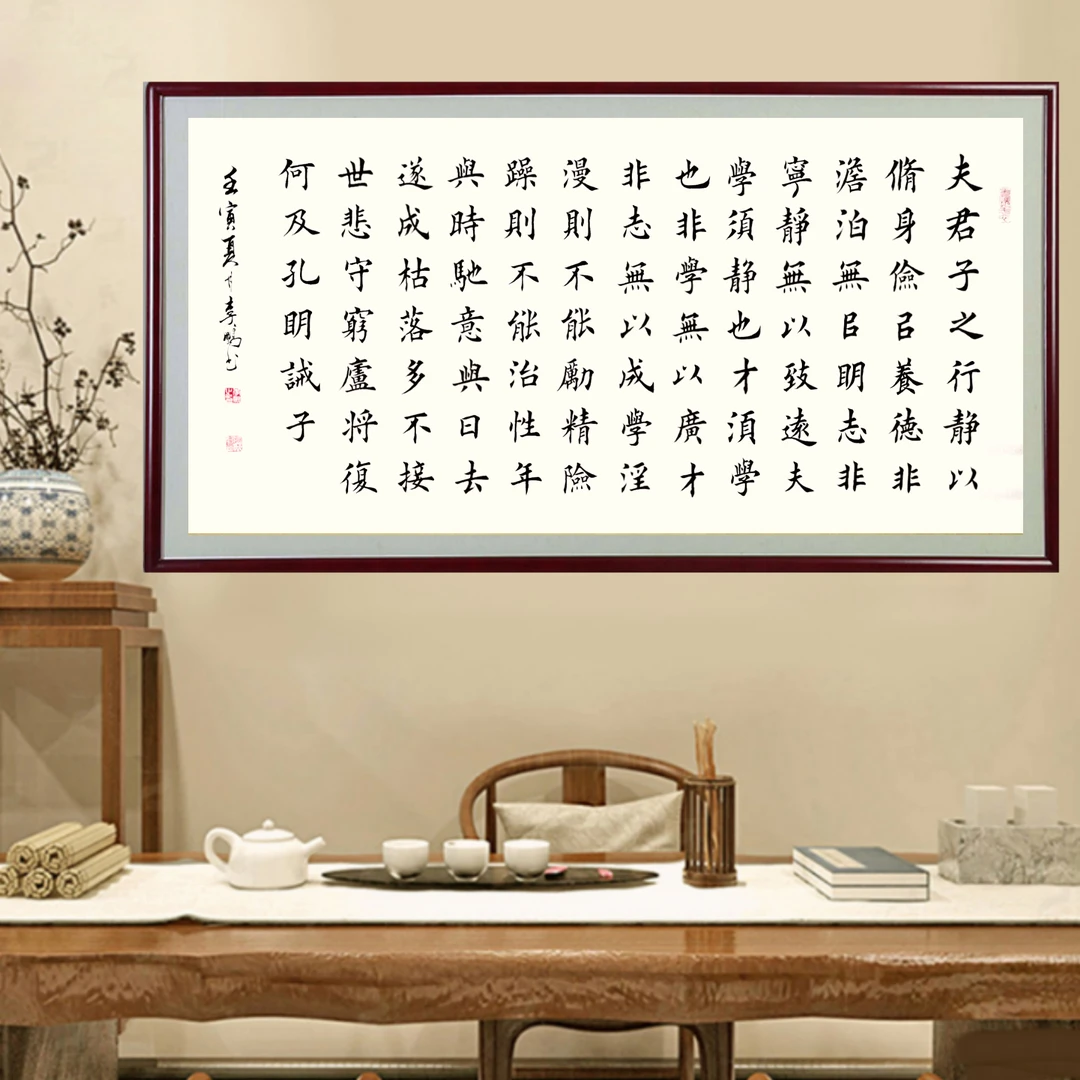 夫君子之行静以
脩身儉㠯養德非
澹泊無㠯眀志非
寧靜無以致遠夫
學須静也才湏學
也非學無以廣才
非志無以成學淫
漫則不能勵精險
躁則不能治性年
與時馳意與日去
遂成枯落多不接
世悲守窮廬将復
何及孔眀誡子
壬寅夏